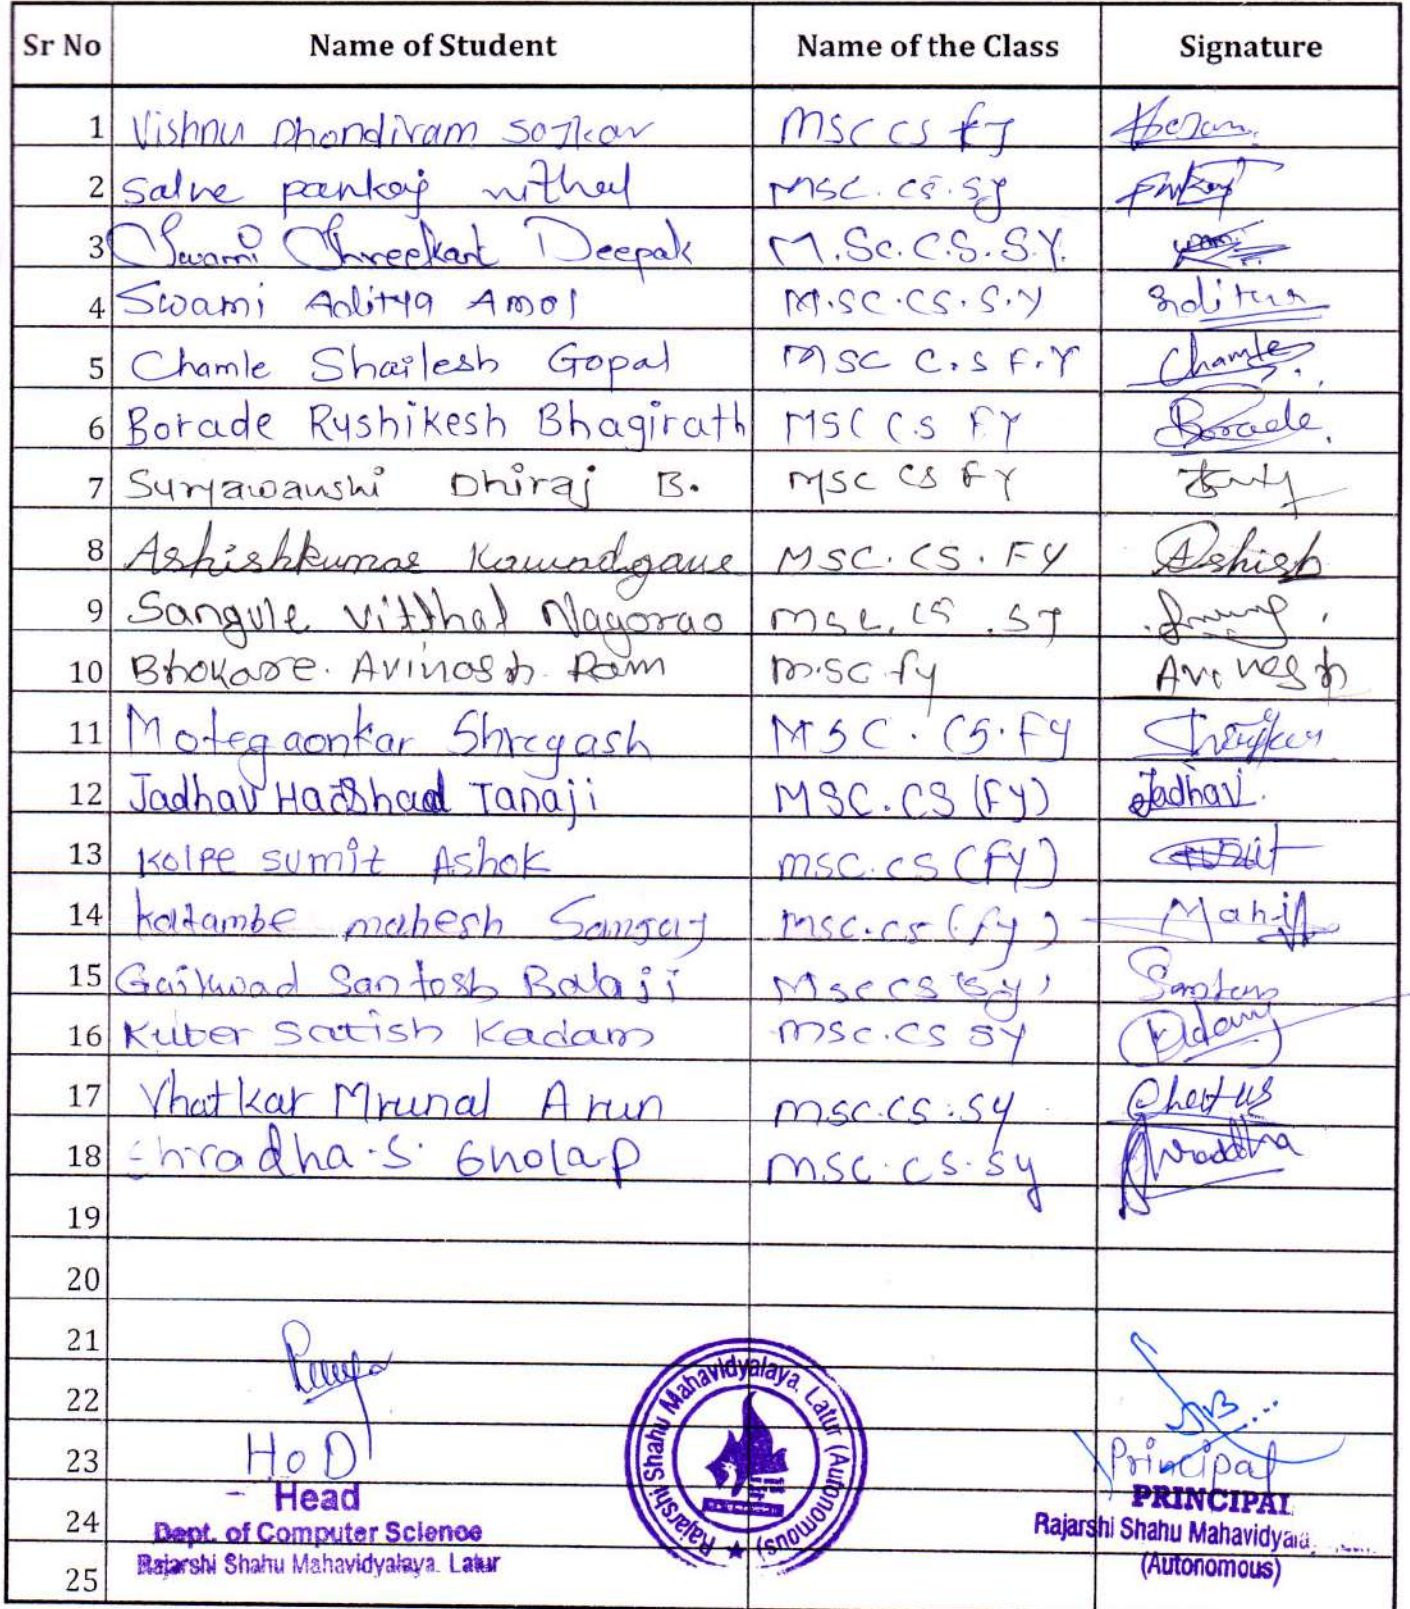 Sr No Name of Student Name of the Class Signature
1 Vishnu Dhondiram MSC CS FY
2 Salve pankaj MSC. CS. SY Pankaj
3 Swami Shreekant Deepak M.Sc. C.S. S.Y.
4 Swami Aditya Amol M.SC.CS. S.Y Aditya
5 Chamle Shailesh Gopal MSC C.S F.Y Chamle
6 Borade Rushikesh Bhagirath MSC CS FY Borade
7 Suryawanshi Dhiraj B. MSC CS FY
8 Ashishkumar MSC. CS. FY Ashish
9 Sangule Vitthal Nagorao MSC. CS. SY
10 Bhokare. Avinash. Ram M.SC. fy Avinash
11 Motegaonkar Shreyash MSC. CS. FY
12 Jadhav Harshad Tanaji MSC. CS (FY) Jadhav.
13 Kolpe sumit Ashok MSC. CS (FY)
14 mahesh Sanjay msc. cs (fy)
15 Gaikwad Santosh Balaji Msc cs sy
16 Kuber Satish Kadam MSC. CS SY
17 Vhatkar Mrunal Arun MSC. CS. SY
18 Shradha. S. Gholap MSC. CS. SY Shraddha
19
20
21
22
23 HoD Principal
Head PRINCIPAL
24 Dept. of Computer Science Rajarshi Shahu
Rajarshi Shahu Mahavidyalaya. Latur (Autonomous)
25
Rajarshi Shahu Mahavidyalaya, Latur (Autonomous)